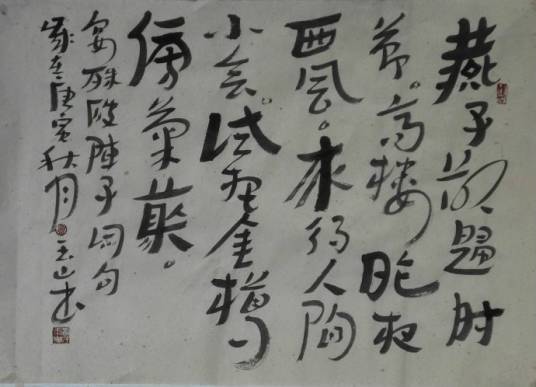 燕子欲歸时
节。高楼昨夜
西风。求得人间
小会。试把金樽
傍菊藂。
晏殊破陣子词句
岁在庚寅秋月 玉山书